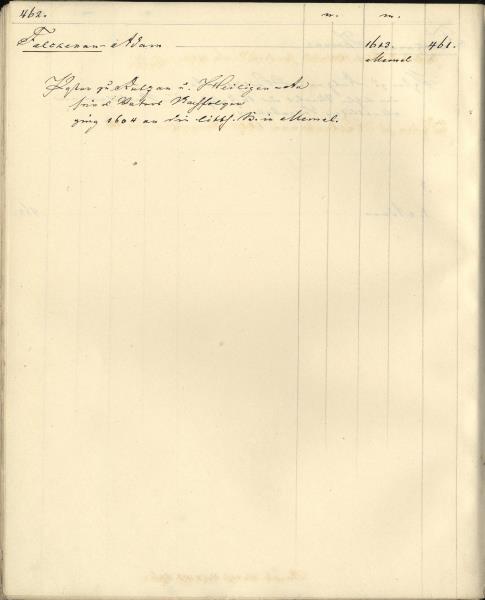 462. n. m.
Falckenau Adam 1612. 461.
Memel
Pastor zu Aulgau u. Heiligen-Aa
seines Vaters Nachfolger
ging 1604 an die litth. K. in Memel.